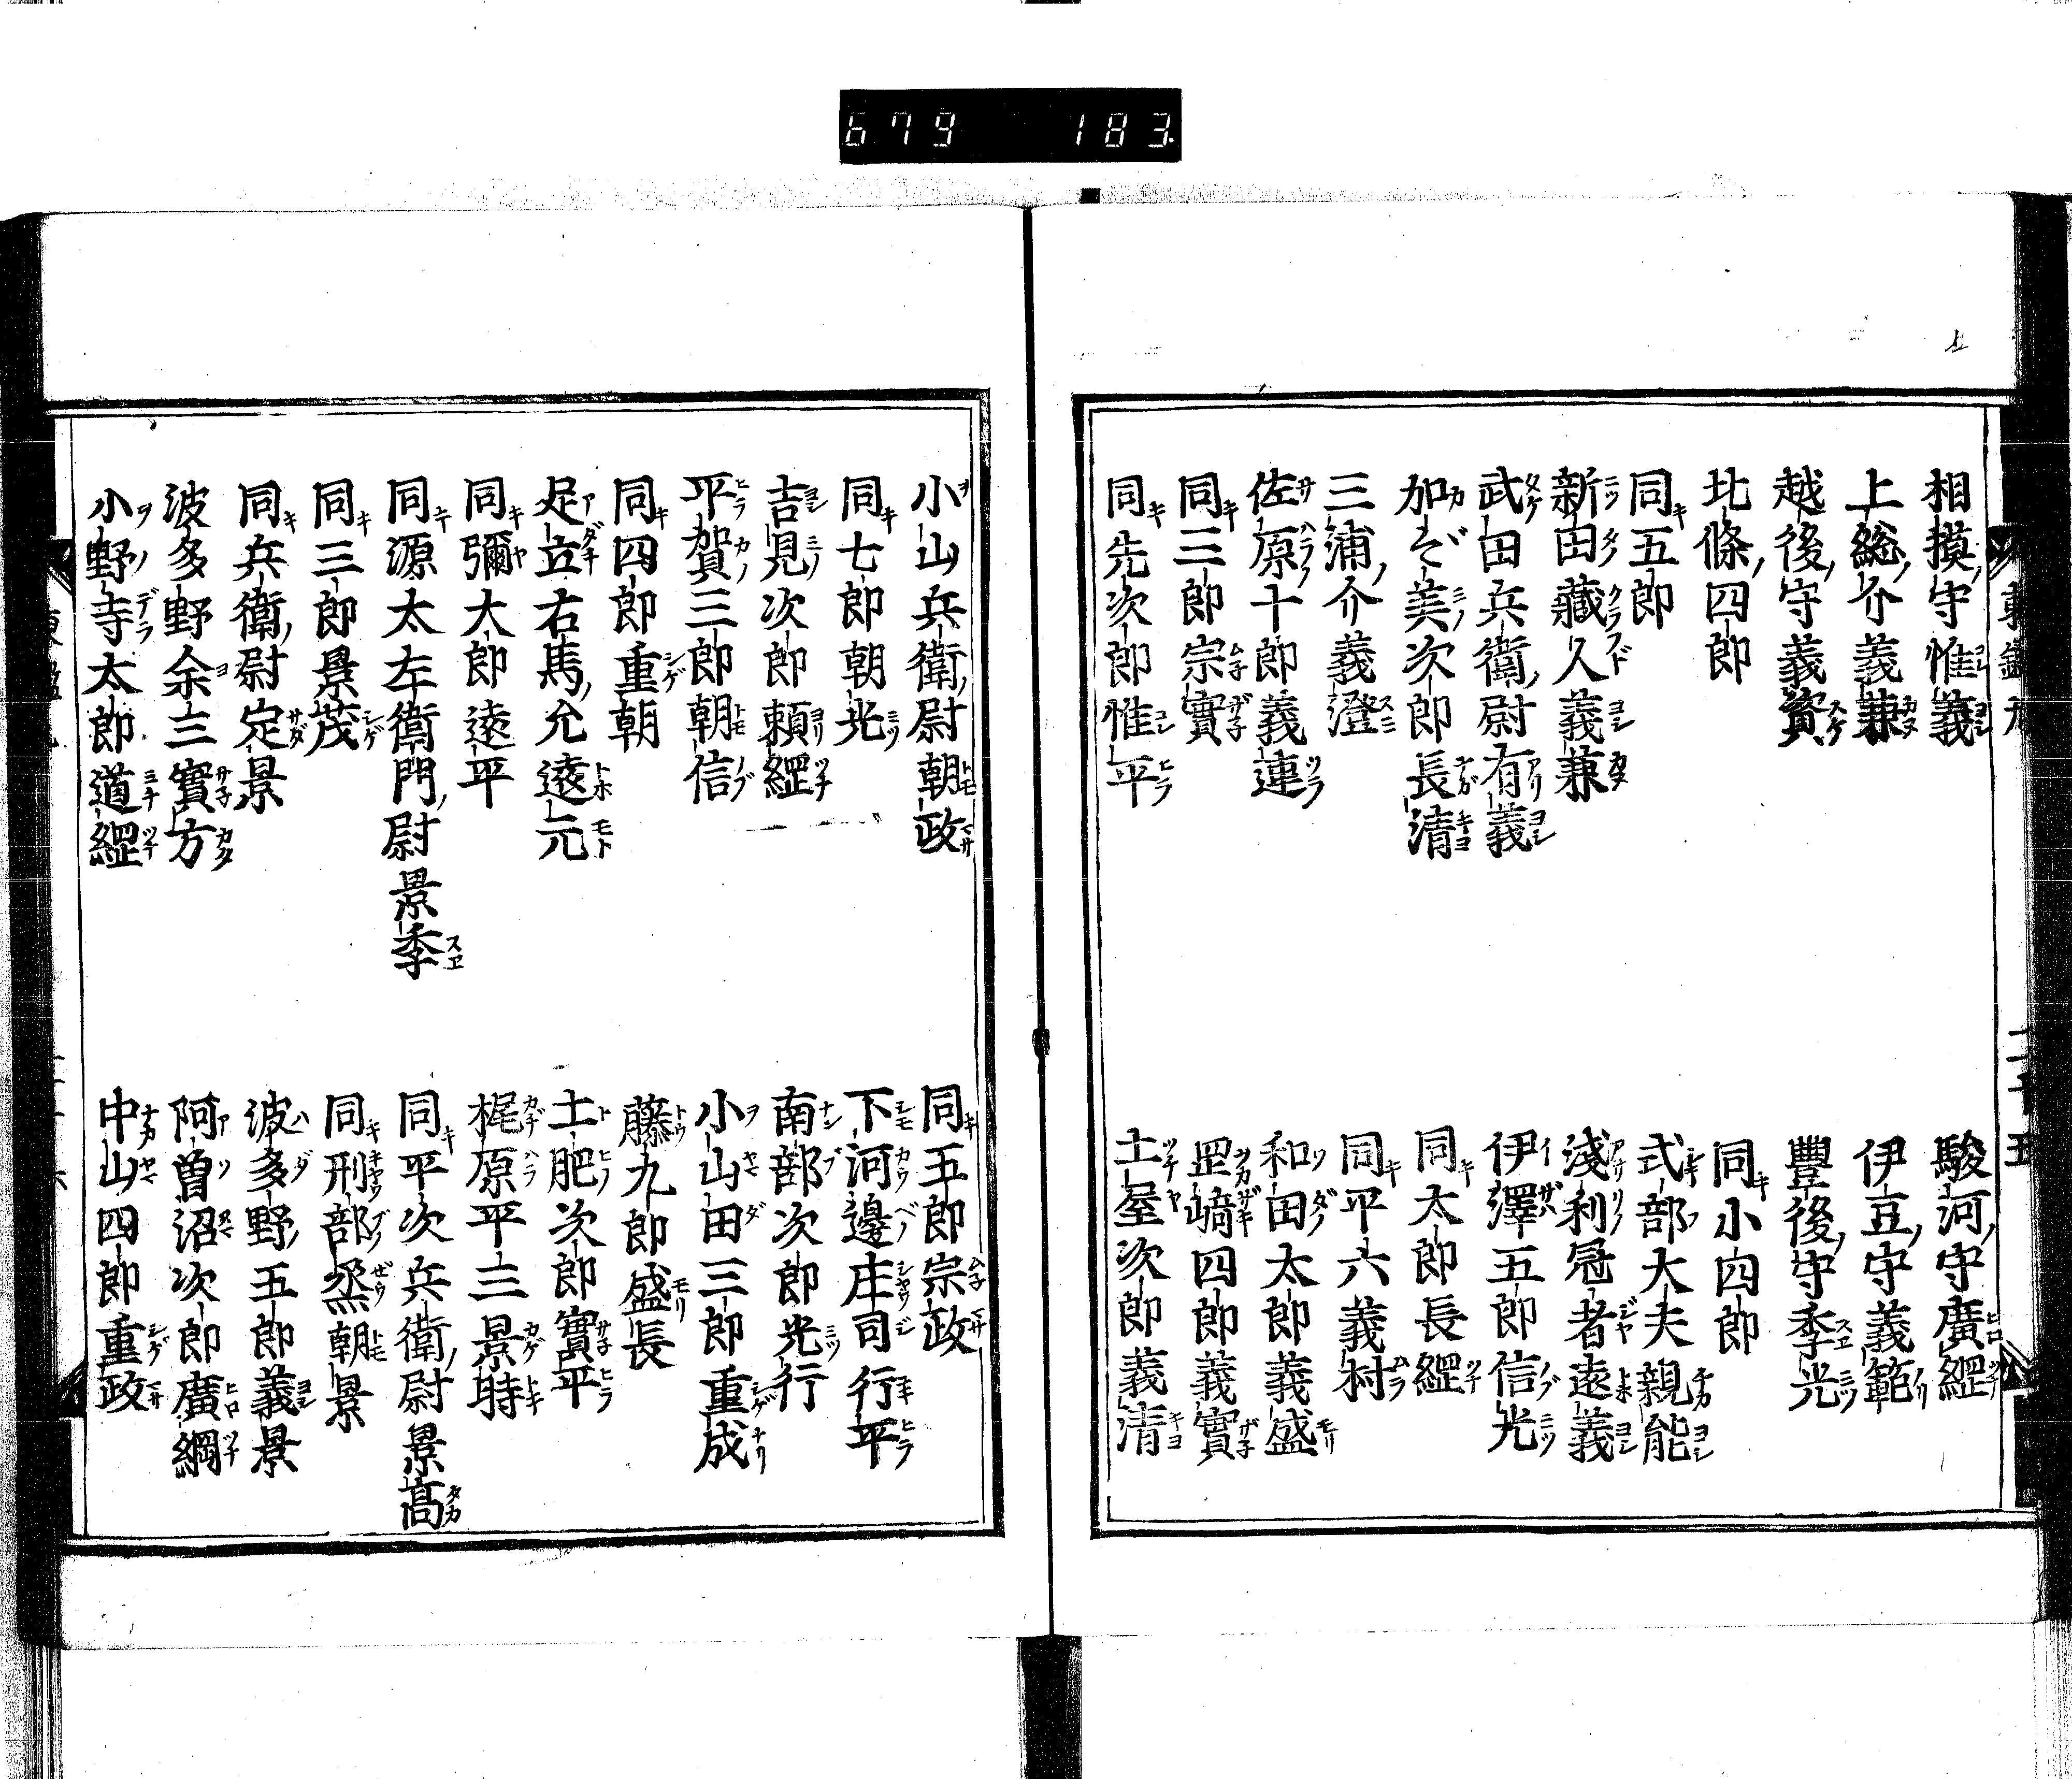 679 183
相摸守惟義 駿河守廣綱
上総介義兼 伊豆守義範
越後守義資 豊後守季光
北條四郎 同小四郎
同五郎 式部大夫親能
新田藏人義兼 淺利冠者遠義
武田兵衛尉有義 伊澤五郎信光
加々美次郎長清 同太郎長綱
三浦介義澄 同平六義村
佐原十郎義連 和田太郎義盛
同三郎宗實 岡﨑四郎義實
同先次郎惟平 土屋次郎義清
小山兵衛尉朝政 同五郎宗政
同七郎朝光 下河邊庄司行平
吉見次郎頼綱 南部次郎光行
平賀三郎朝信 小山田三郎重成
同四郎重朝 藤九郎盛長
足立右馬允遠元 土肥次郎實平
同彌太郎遠平 梶原平三景時
同源太左衛門尉景季 同平次兵衛尉景髙
同三郎景茂 同刑部烝朝景
同兵衛尉定景 波多野五郎義景
波多野余三實方 阿曽沼次郎廣綱
小野寺太郎道綱 中山四郎重政